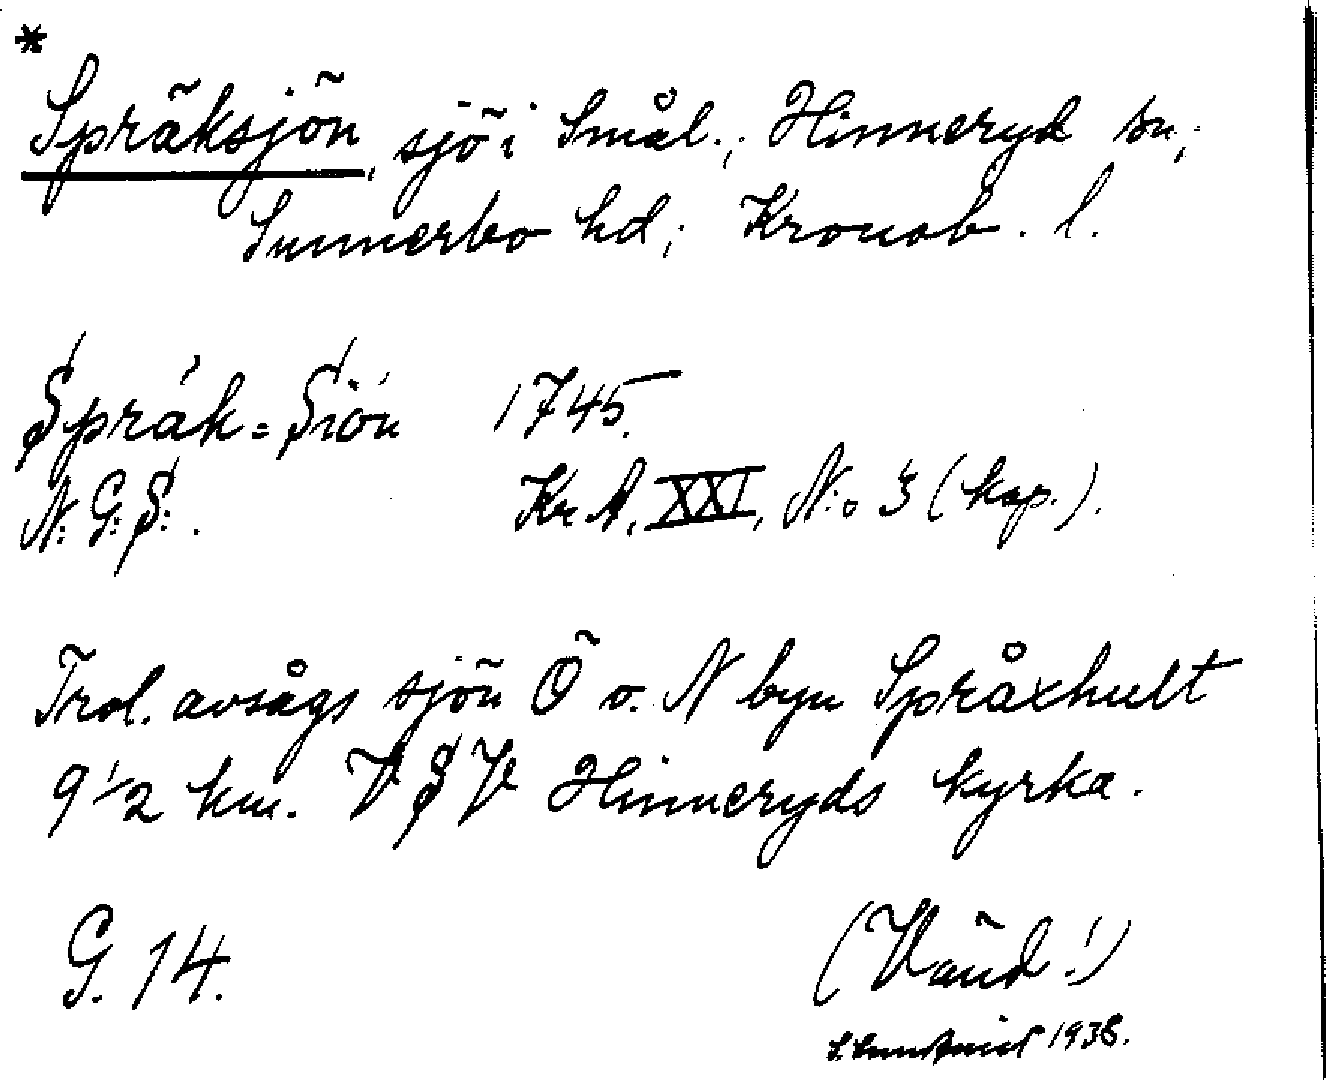 *
Spräksjön, sjö i Smål.; Hinneryd sn;
Sunnerbo hd; Kronob. l.
Språk=Siön 1745.
N:G:S:. Kr A, XXI, N:o 3 (kop.).
Trol. avsågs sjön Ö o. N byn Språxhult
9 1/2 km. V S V Hinneryds kyrka.
G. 14.
(Vänd!)
1938.